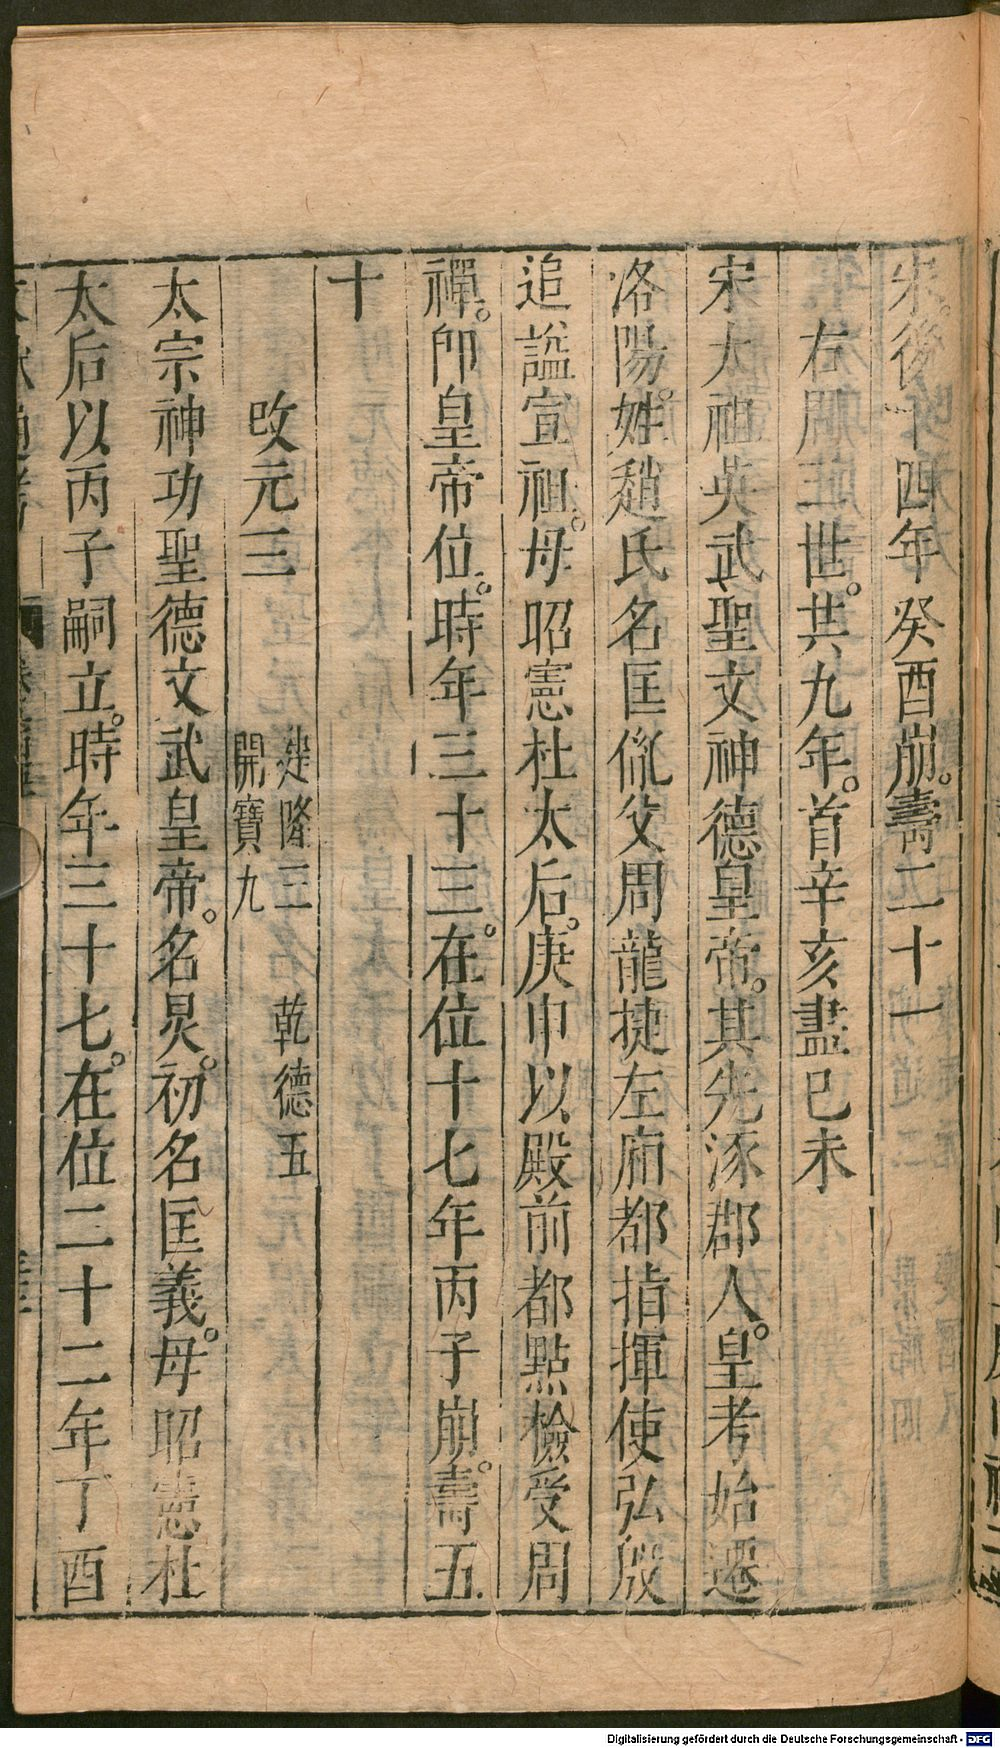 宋。後四年癸酉崩。壽二十一
右周三世。共九年。首辛亥盡己未
宋太祖英武聖文神德皇帝。其先涿郡人。皇考始遷
洛陽。姓趙氏名匡胤父周龍捷左廂都指揮使弘殷
追謚宣祖。母昭憲杜太后。庚申以殿前都點檢受周
禪。即皇帝位。時年三十三。在位十七年丙子崩。壽五
十
改元三 建隆三 乾德五
開寶九
太宗神功聖德文武皇帝。名炅。初名匡義。母昭憲杜
太后以丙子嗣立。時年三十七。在位二十二年丁酉
Digitalisierung gefördert durch die Deutsche Forschungsgemeinschaft - DFG